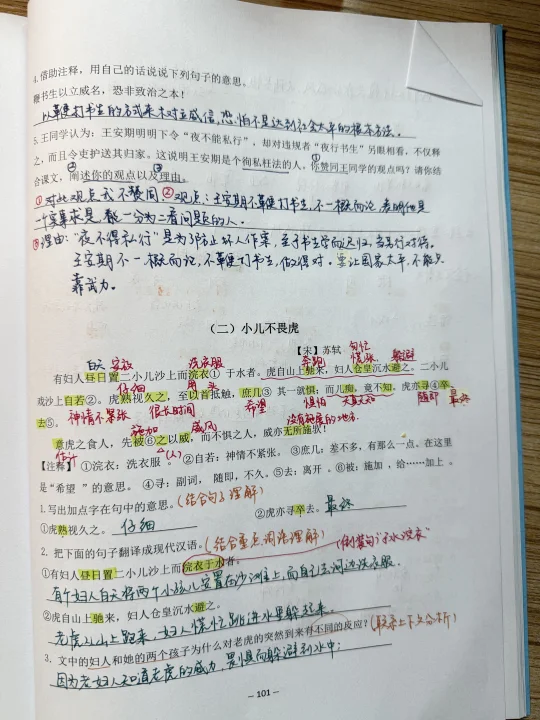 4.借助注释，用自己的话说说下列句子的意思。
鞭书生以立威名，恐非致治之本！
以鞭打书生的方式来树立威信，恐怕不是达到社会太平的根本方法。
5.王同学认为：王安期明明下令“夜不能私行”，却对违规者“夜行书生”另眼相看，不仅释
之，而且令吏护送其归家。这说明王安期是个徇私枉法的人。你赞同王同学的观点吗？请你结
合课文，阐述你的观点以及理由。
①对此观点我不赞同 ②观点：王安期不鞭打书生，不一概而论，表明他是
一个实事求是，能一分为二看问题的人。
③理由：“夜不得私行”是为了防止坏人作案，至于书生学而迟归，另当别对待。
王安期不一概而论，不鞭打书生，做得对。要让国家太平，不能只
靠武力。
（二）小儿不畏虎
【宋】苏轼
白天 安放 洗衣服 奔跑 匆忙 慌张 躲避
有妇人昼日置二小儿沙上而浣衣①于水者。虎自山上驰来，妇人仓皇沉水避之。二小儿
仔细 用 头
戏沙上自若②。虎熟视久之，至以首抵触，庶几③其一就惧；而儿痴，竟不知。虎亦寻④卒
去⑤。 神情不紧张 很长时间 希望 惧怕 随即 最终
施加 威风
意虎之食人，先被⑥之以威，而不惧之人，威亦无所施欤！
估计 (人)
【注释】①浣衣：洗衣服。②自若：神情不紧张。③庶几：差不多，有那么一点。在这里
是“希望”的意思。④寻：副词，随即，不久。⑤去：离开。⑥被：施加，给……加上。
1.写出加点字在句中的意思。(结合句子理解)
①虎熟视久之。 仔细 ②虎亦寻卒去。 最终
2. 把下面的句子翻译成现代汉语。(结合重点词语理解)
①有妇人昼日置二小儿沙上而浣衣于水者。
有个妇人白天将两个小孩儿安置在沙滩上，而自己去河边洗衣服。
②虎自山上驰来，妇人仓皇沉水避之。
老虎从山上跑来，妇人慌忙跳进水里躲起来。
3. 文中的妇人和她的两个孩子为什么对老虎的突然到来有不同的反应？(联系上下文分析)
因为老妇人知道老虎的威力，畏惧而躲避到水中；
— 101 —